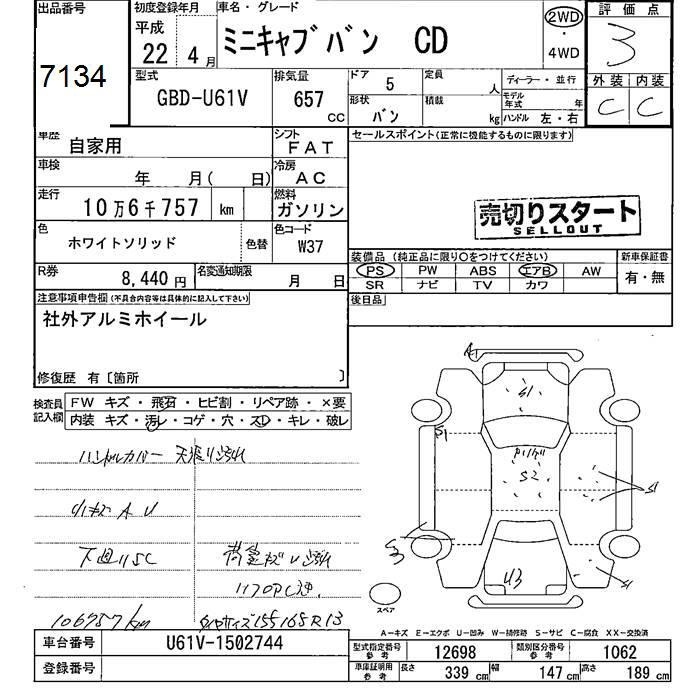 出品番号
7134
初度登録年月
平成
22 4月
車名・グレード
ミニキャブバン CD
2WD
・
4WD
評価点
3
外装 内装
C C
型式
GBD-U61V
排気量
657 CC
ドア 5
形状 バン
定員 人
積載 kg
ディーラー・並行
モデル年式 年
ハンドル 左・右
車歴
自家用
シフト
FAT
セールスポイント(正常に機能するものに限ります)
車検
年 月( 日)
冷房
AC
走行
10万6千757 km
燃料
ガソリン
売切りスタート
SELLOUT
色
ホワイトソリッド
色替
色コード
W37
装備品(純正品に限り○をつけてください)
新車保証書
PS PW ABS エアB AW
SR ナビ TV カワ
有・無
R券
8,440円
名変通知期限
月 日
後日品
注意事項申告欄(不具合内容等は具体的に記入して下さい)
社外アルミホイール
修復歴 有〔箇所 〕
検査員記入欄
FW キズ・飛石・ヒビ割・リペア跡・×要
内装 キズ・汚レ・コゲ・穴・スレ・キレ・破レ
ハンドルカバー 天張り汚れ
小キズ A U
下廻りSC
荷室キズ 汚れ
106757km
タイヤサイズ155 165R13
A1
S1
S1
S2
S1
S3
U3
S1
スペア
A－キズ E－エクボ U－凹み W－補修跡 S－サビ C－腐食 XX－交換済
車台番号
U61V-1502744
登録番号
型式指定番号 参考
12698
類別区分番号 参考
1062
車庫証明用 参考
長さ 339 cm 幅 147 cm 高さ 189 cm